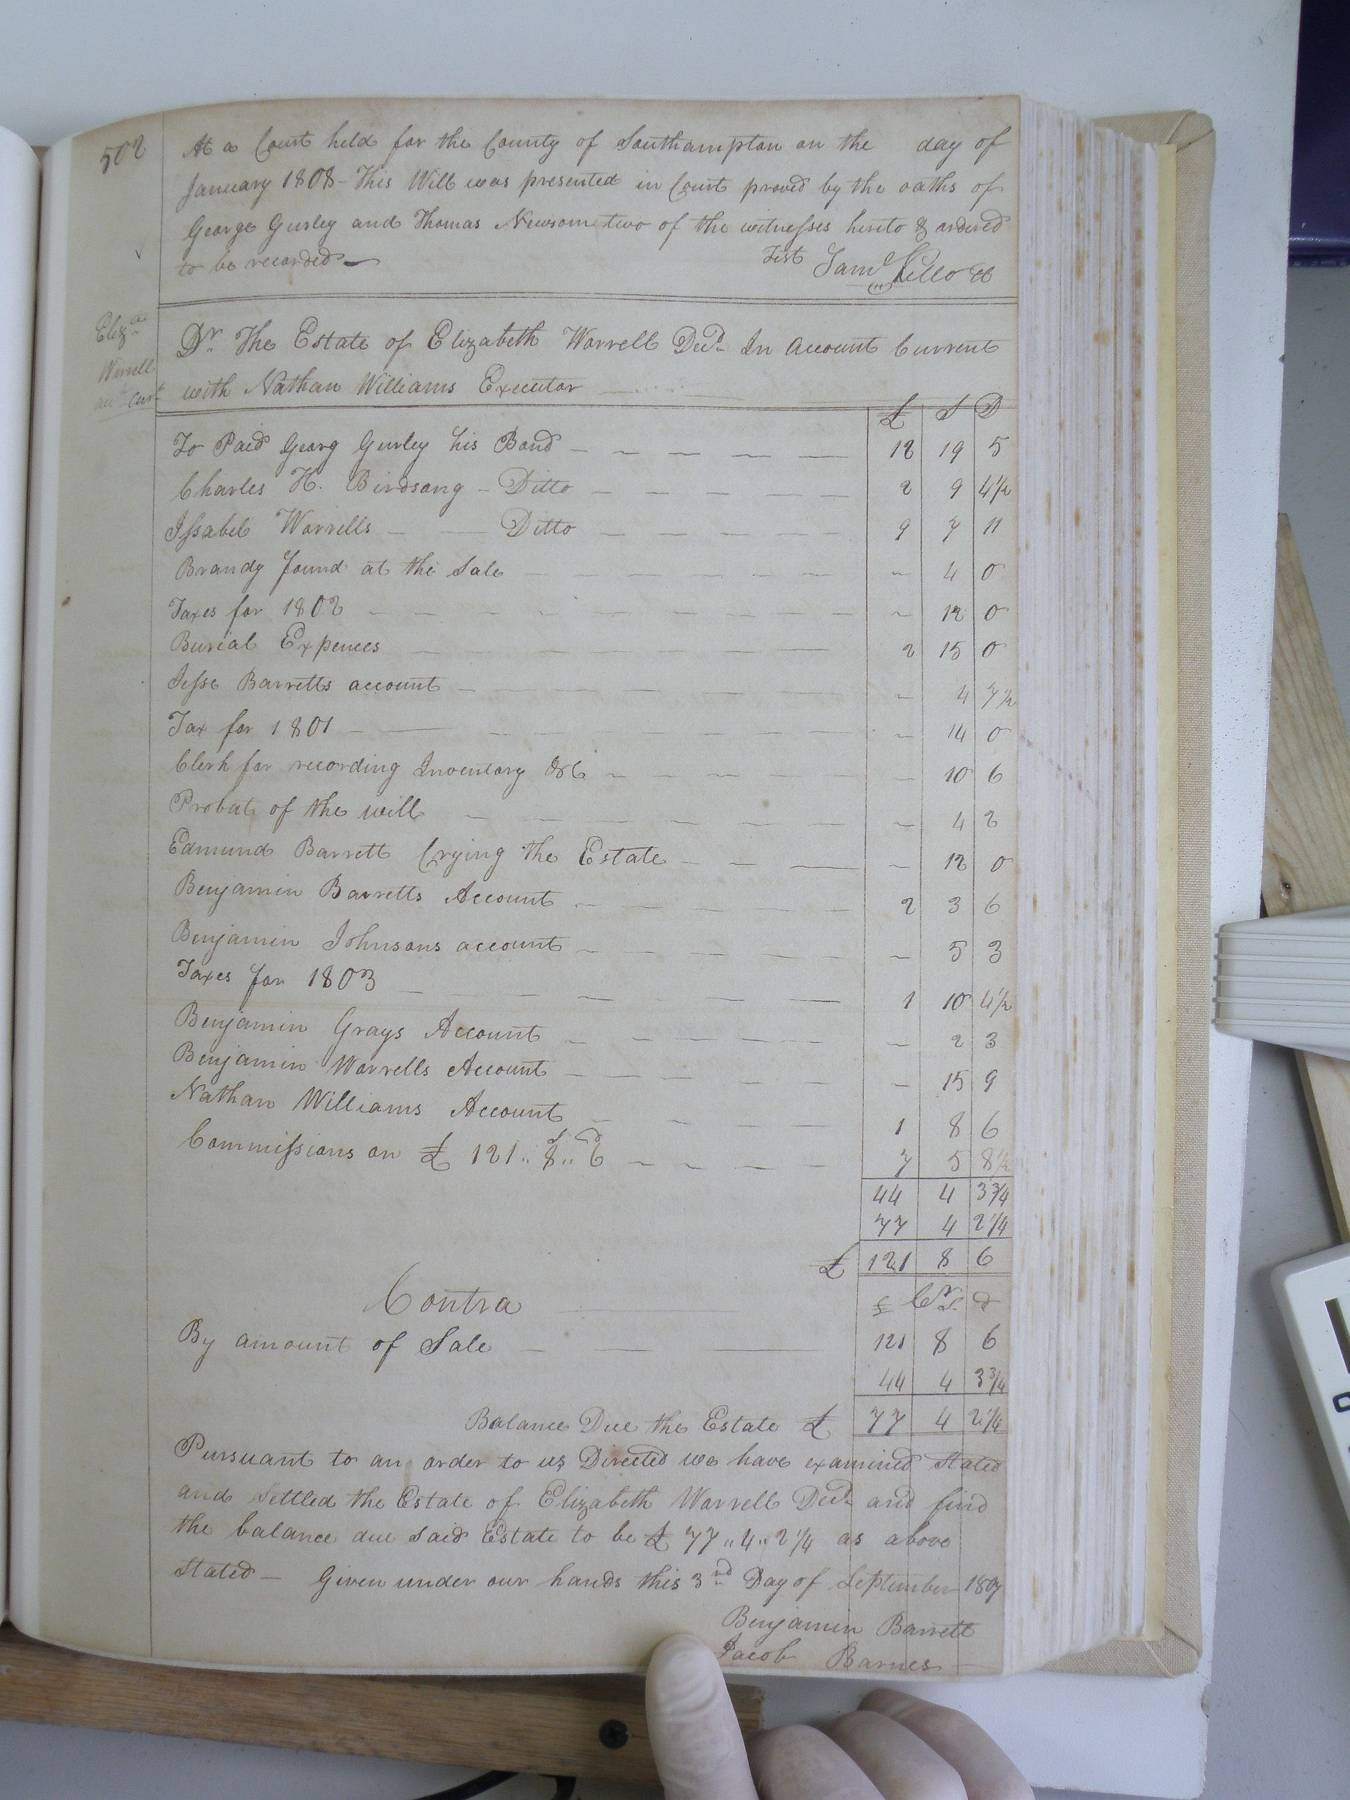 502
At a Court held for the County of Southampton on the day of
January 1808 - This Will was presented in Court proved by the oaths of
George Gurley and Thomas Newsome two of the witnesses hereto & ordered
to be recorded
Test Saml Kello CC
Eliza
Worrell
acct Curt
Dr. The Estate of Elizabeth Worrell Decd In Account Current
with Nathan Williams Executor
£ S D
To Paid Georg Gurley his Bond 12 19 5
Charles H. Birdsong - Ditto 2 9 4½
Issabel Worrells Ditto 9 7 11
Brandy found at the Sale 4 0
Taxes for 1802 12 0
Burial Expences 2 15 0
Jesse Barretts account 4 7½
Tax for 1801 14 0
Clerk for recording Inventory &C 10 6
Probat of the will 4 2
Edmund Barrett Crying the Estate 12 0
Benjamin Barretts Account 2 3 6
Benjamin Johnsons account 5 3
Taxes for 1803 1 10 4½
Benjamin Grays Account 2 3
Benjamin Worrells Account 15 9
Nathan Williams Account 1 8 6
Commissions on £ 121 " 8 " 6 7 5 8½
44 4 3¾
77 4 2¼
£ 121 8 6
Contra Cr.
£ S. d
By amount of Sale 121 8 6
44 4 3¾
Balance Due the Estate £ 77 4 2¼
Pursuant to an order to us Directed we have examined Stated
and Settled the Estate of Elizabeth Worrell Decd and find
the balance due said Estate to be £ 77 " 4 " 2¼ as above
Stated - Given under our hands this 3nd Day of September 1807
Benjamin Barrett
Jacob Barnes